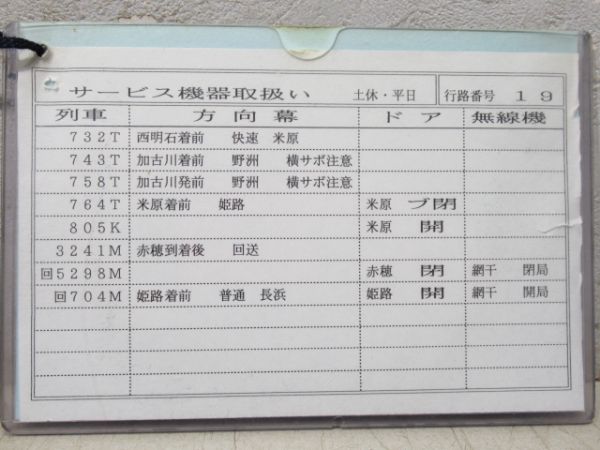 サービス機器取扱い 土休・平日 行路番号 19
列車 方向幕 ドア 無線機
732T 西明石着前 快速 米原
743T 加古川着前 野洲 横サボ注意
758T 加古川発前 野洲 横サボ注意
764T 米原着前 姫路 米原 ブ閉
805K 米原 開
3241M 赤穂到着後 回送
回5298M 赤穂 閉 網干 閉局
回704M 姫路着前 普通 長浜 姫路 開 網干 開局